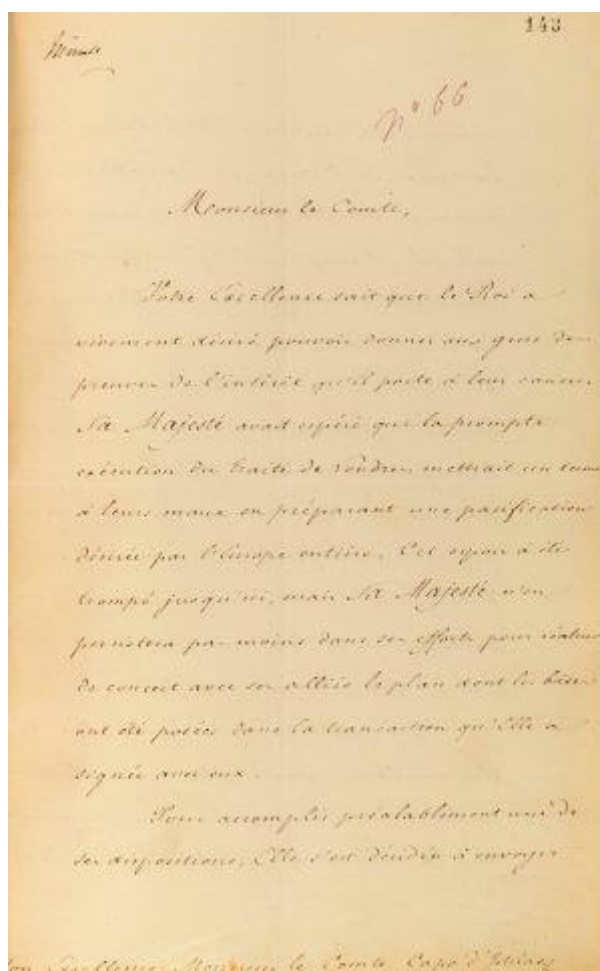 143
Minute
n° 66
Monsieur le Comte,
Votre Excellence sait que le Roi a
vivement désiré pouvoir donner aux grecs des
preuves de l'intérêt qu'il porte à leur cause.
Sa Majesté avait espéré que la prompte
exécution du traité de Londres mettrait un terme
à leurs maux en préparant une pacification
désirée par l'Europe entière. Cet espoir a été
trompé jusqu'ici, mais Sa Majesté n'en
persistera pas moins dans ses efforts pour réaliser
de concert avec ses alliés le plan dont les bases
ont été posées dans la transaction qu'Elle a
signée avec eux.
Pour accomplir préalablement une de
ses dispositions, Elle s'est décidée à envoyer
Son Excellence Monsieur le Comte Capo d'Istrias